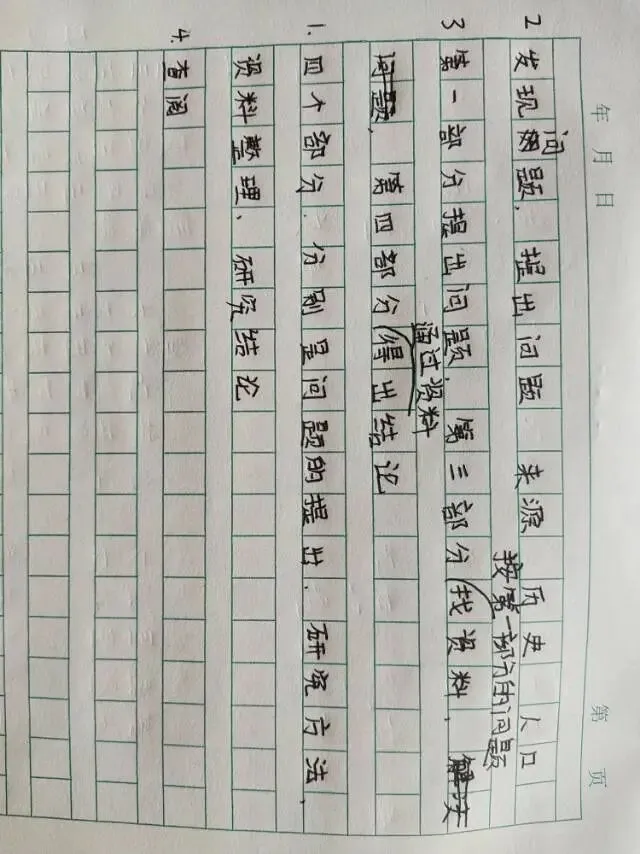 年 月 日 第 页
2 发现问题. 提出问题 来源 历史 人口
按第一部分的问题
3 第一部分提出问题, 第三部分找资料、解决
通过资料
问题. 第四部分得出结论
1. 四个部分. 分别是问题的提出. 研究方法、
资料整理、研究结论
4. 查阅